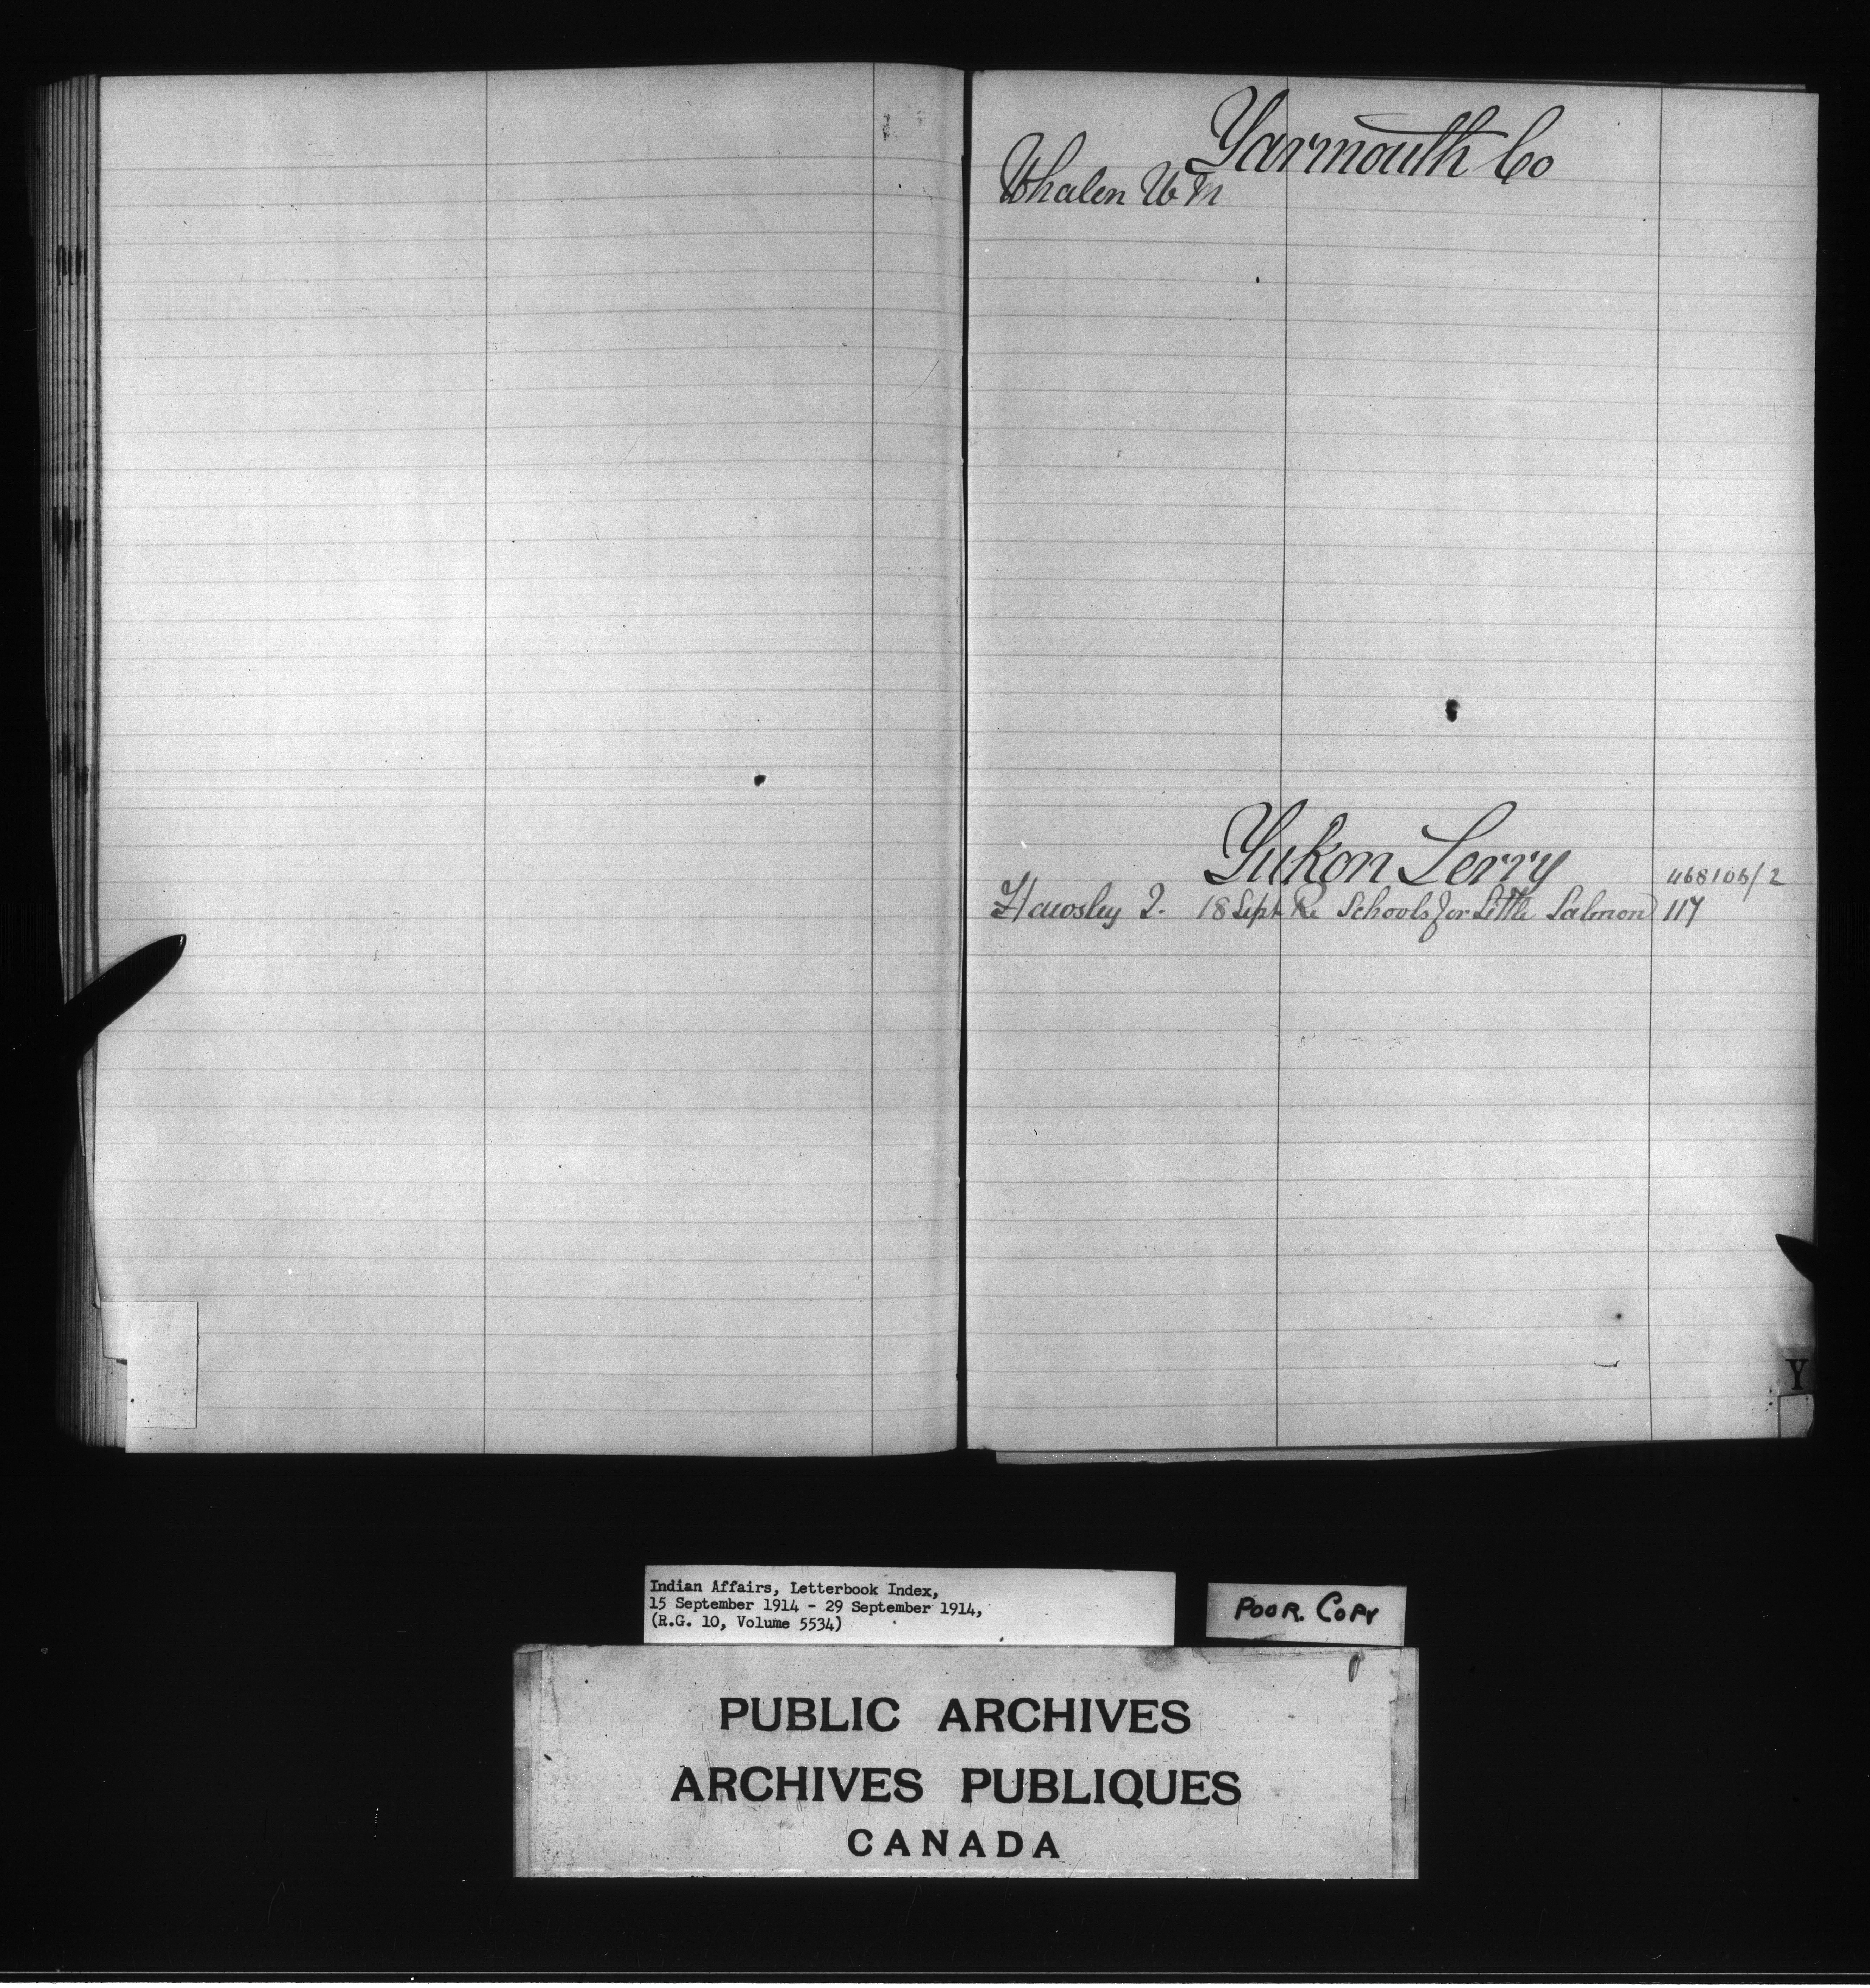 Yarmouth Co
Whalen W M
Yukon Terry
468106/2
Hawksley J. 18 Sept Re Schools for Little Salmon 117
Y
Indian Affairs, Letterbook Index,
15 September 1914 - 29 September 1914,
(R.G. 10, Volume 5534)
POOR. COPY
PUBLIC ARCHIVES
ARCHIVES PUBLIQUES
CANADA